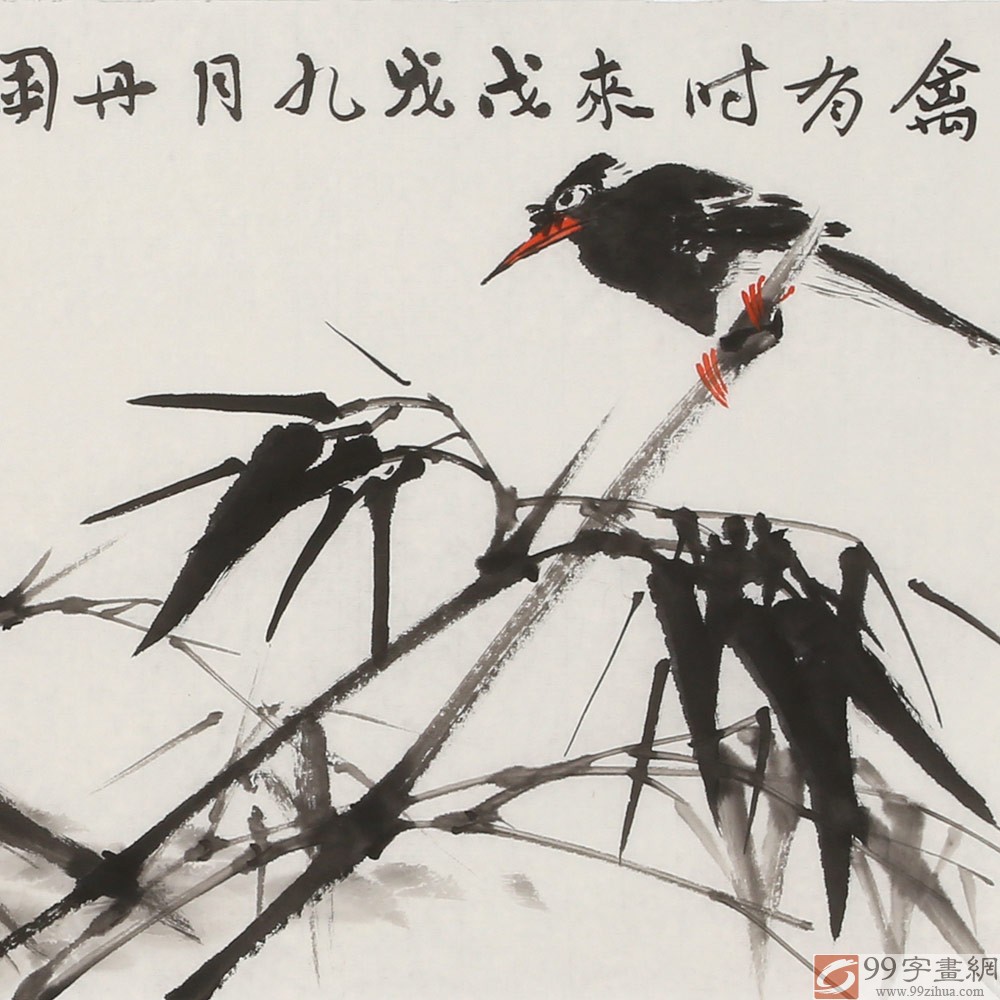 禽有时來戊戌九月丹
99字畫網
www.99zihua.com